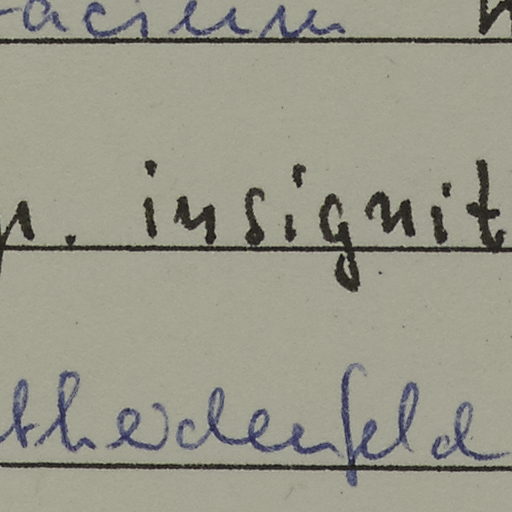 acium
p. insignit
theidenfeld